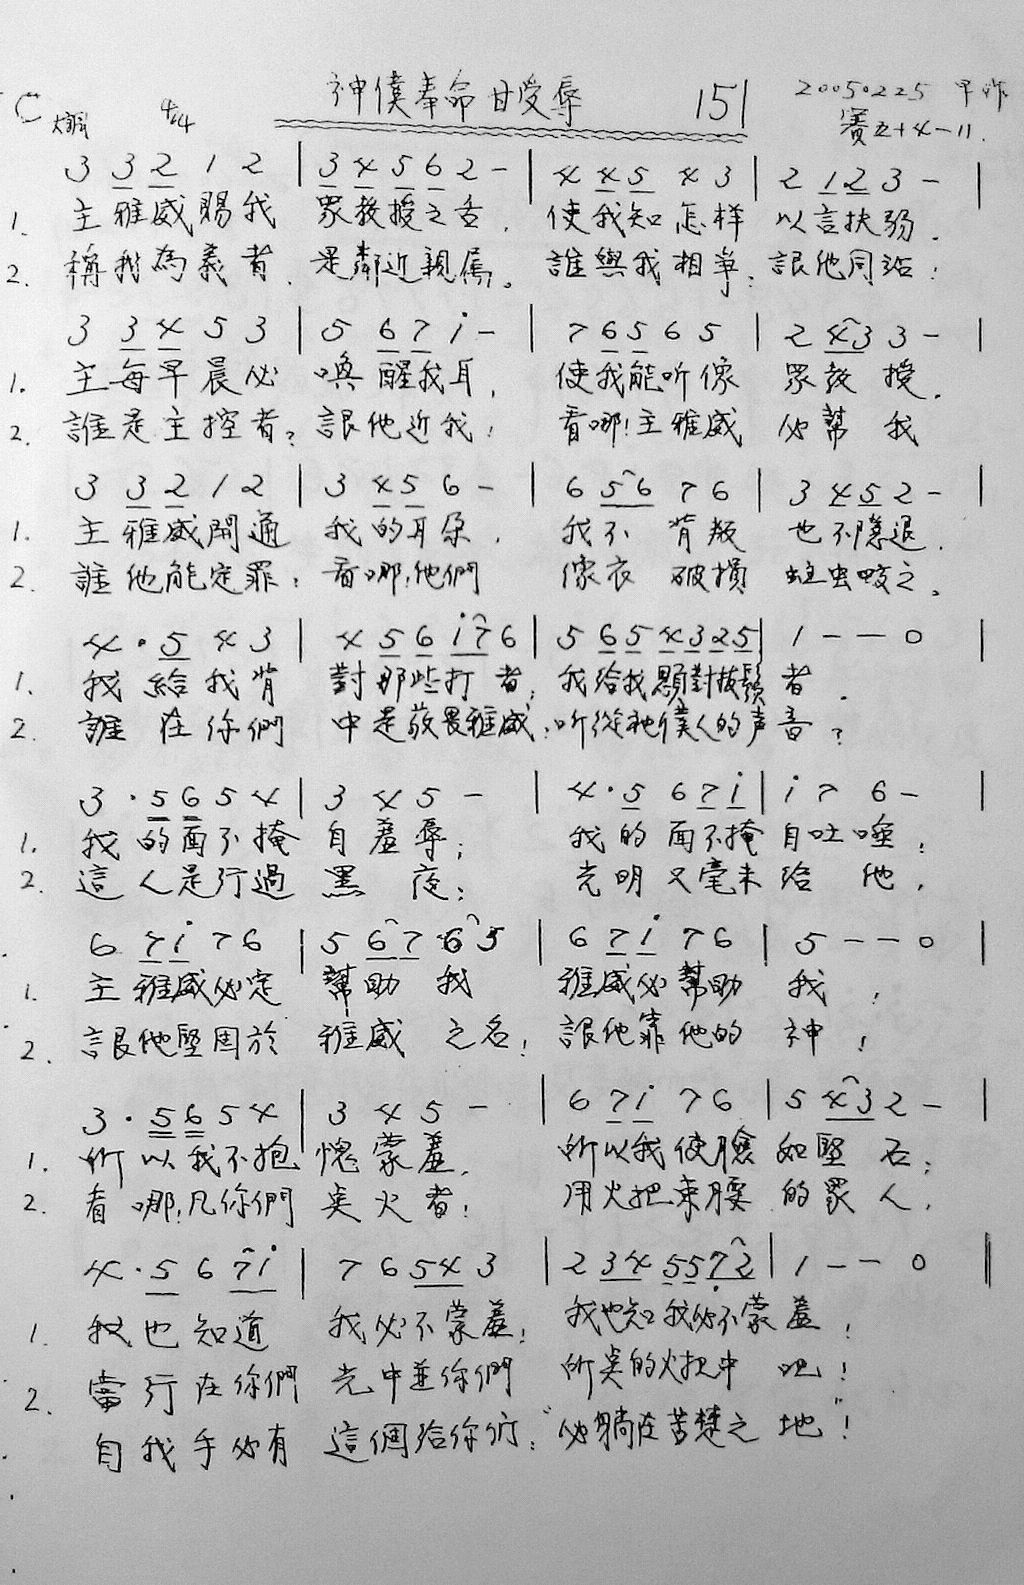 C大調 4/4 神僕奉命甘受辱 151 20050225 早作
賽五十4-11.
3 3 2 1 2 | 3 4 5 6 2 - | 4 4 5 4 3 | 2 1 2 3 - |
1. 主雅威賜我 眾教授之舌, 使我知怎样 以言扶弱.
2. 稱我為義者, 是鄰近親傌。 誰與我相爭, 詪他同站!
3 3 4 5 3 | 5 6 7 i - | 7 6 5 6 5 | 2 4 3 3 - |
1. 主每早晨必 喚醒我耳, 使我能听像 眾教 授.
2. 誰是主控者? 詪他近我! 看哪!主雅威 必幫 我
3 3 2 1 2 | 3 4 5 6 - | 6 5 6 7 6 | 3 4 5 2 - |
1. 主雅威開通 我的耳朵, 我不 背叛 也不隱退.
2. 誰他能定罪; 看哪!他們 像衣 破損 蛀虫咬之。
4 · 5 4 3 | 4 5 6 i 7 6 | 5 6 5 4 3 2 5 | 1 - - 0 |
1. 我給我背 對那些打者; 我給我顋對拔鬚者.
2. 誰在你們 中是敬畏雅威; 听從祂僕人的声音?
3 · 5 6 5 4 | 3 4 5 - | 4 · 5 6 7 i | i 7 6 - |
1. 我的面不掩 自羞辱; 我的面不掩 自吐唾;
2. 這人是行過 黑夜; 光明又毫未 給他,
6 7 i 7 6 | 5 6 7 6 5 | 6 7 i 7 6 | 5 - - 0 |
1. 主雅威必定 幫助我 雅威必幫助 我;
2. 詪他堅固於 雅威之名; 詪他靠他的 神!
3 · 5 6 5 4 | 3 4 5 - | 6 7 i 7 6 | 5 4 3 2 - |
1. 所以我不抱 愧蒙羞, 所以我使臉 如堅石;
2. 看哪!凡你們 奌火者! 用火把束腰 的眾人,
4 · 5 6 7 i | 7 6 5 4 3 | 2 3 4 5 5 7 2 | 1 - - 0 ||
1. 我也知道 我必不蒙羞; 我也知我必不蒙羞;
2. 當行在你們 光中並你們 所奌的火把中 吧!
自我手必有 這個給你們: "必躺在苦楚之地"!